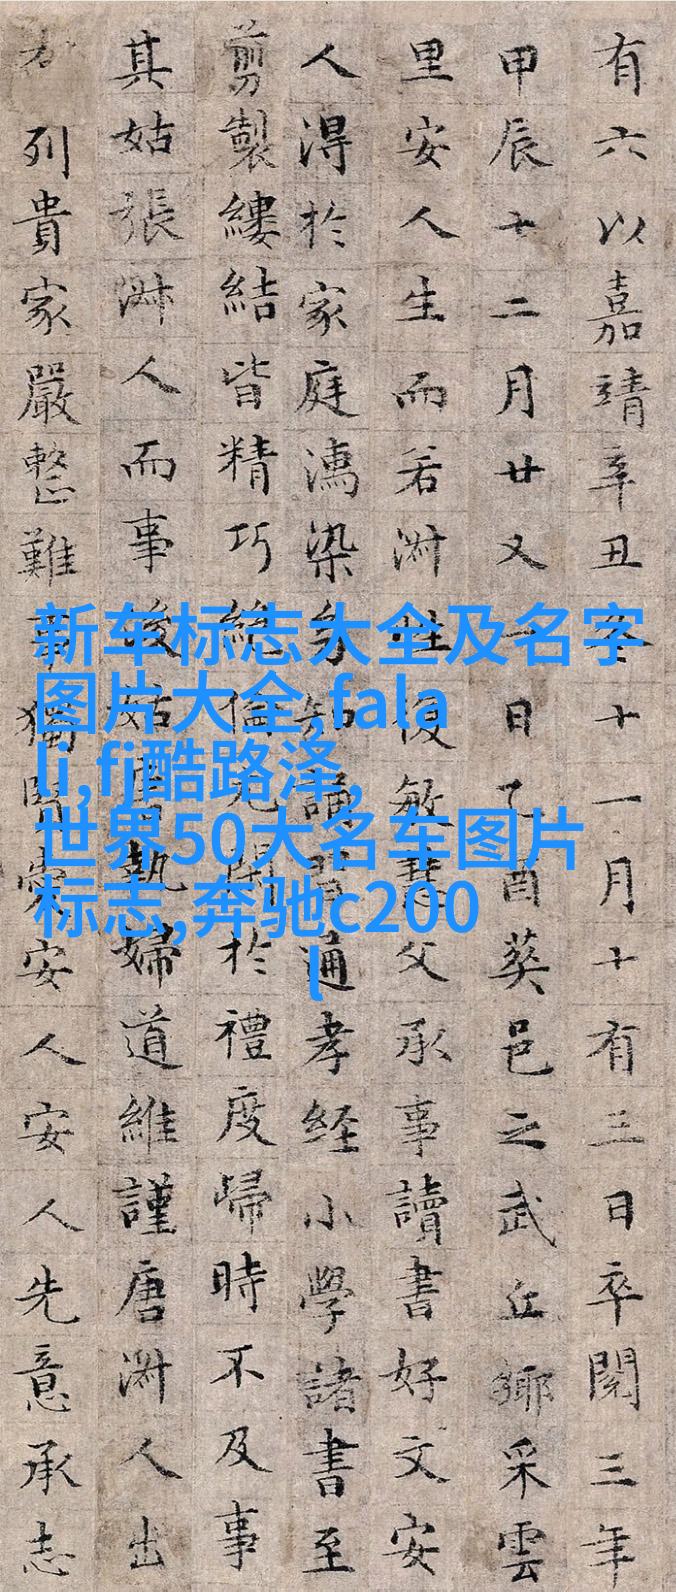 有六以嘉靖辛丑冬十一月十有三日卒閱三年
甲辰十二月廿又一日乙酉葵邑之武丘鄉采雲
里安人生而若淑性俊敏慧父承事讀書好文安
人淂於家庭濡染多知誦習通孝経小學諸書至
剪製縷結皆精巧絕倫尤閑於禮度歸時不及事
其姑張淑人而事後姑唐執婦道維謹唐淑人出
列貴家嚴整難事獨賢愛安人安人先意承志
新车标志大全及名字
图片大全,fala
li,fj酷路泽,
世界50大名车图片
标志,奔驰c200
l